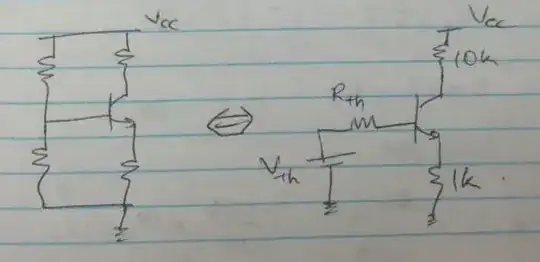 Vcc
Vcc
10k
Rth
Vth
1k